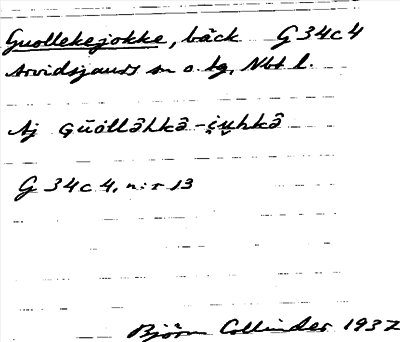 Guollekejokke, bäck G 34c4
Arvidsjaurs sn o. tg, Nbt l.
Aj
G 34c 4, n:r 13
Björn Collinder 1937